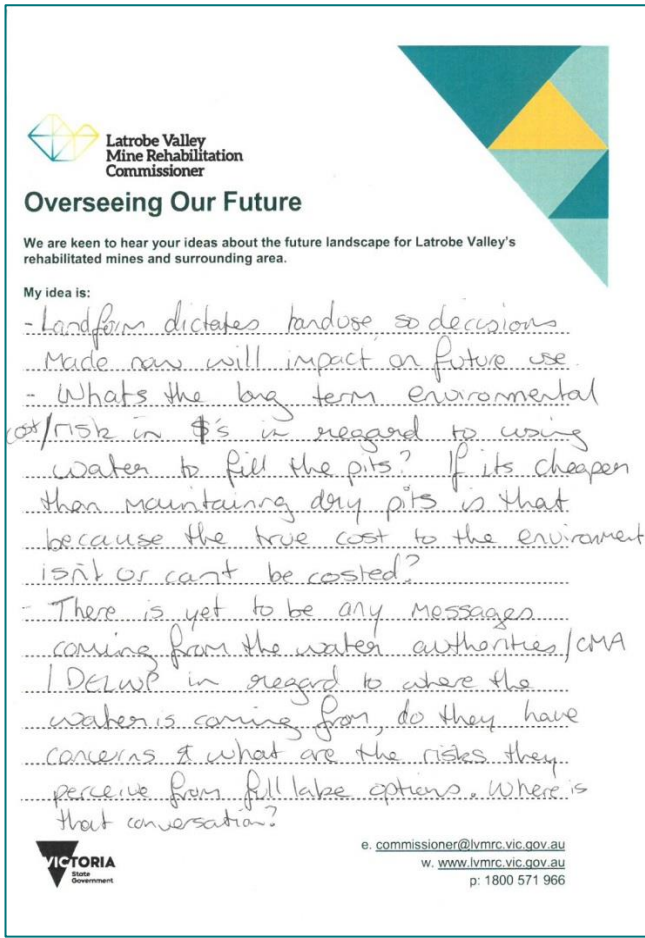 Latrobe Valley
Mine Rehabilitation
Commissioner
Overseeing Our Future
We are keen to hear your ideas about the future landscape for Latrobe Valley's
rehabilitated mines and surrounding area.
My idea is:
- Landform dictates landuse, so decisions
made now will impact on future use.
- Whats the long term environmental
cost/risk in $'s in regard to using
water to fill the pits? If its cheaper
than maintaining dry pits is that
because the true cost to the environment
isn't or can't be costed?
- There is yet to be any messages
coming from the water authorities/CMA
/DELWP in regard to where the
water is coming from, do they have
concerns & what are the risks they
perceive from full lake options. Where is
that conversation?
VICTORIA
State
Government
e. commissioner@lvmrc.vic.gov.au
w. www.lvmrc.vic.gov.au
p: 1800 571 966